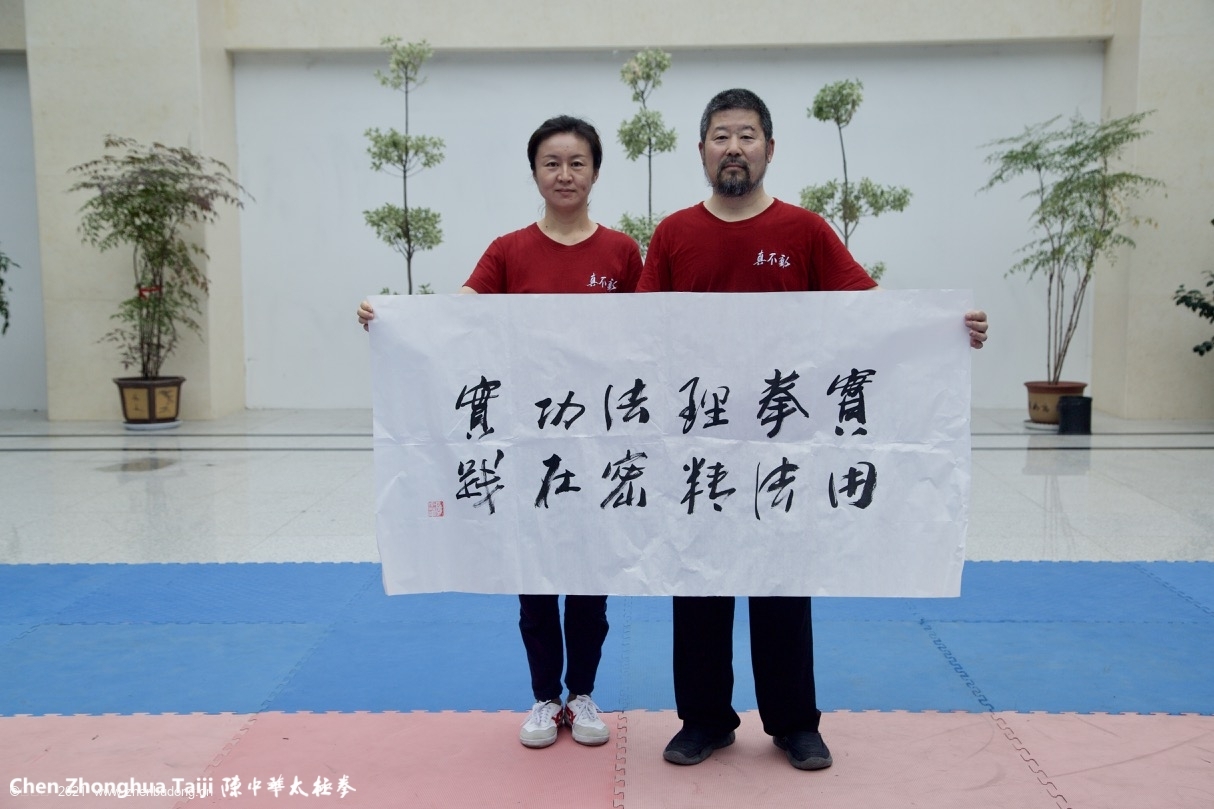 真不動
真不動
實用
拳法
理精
法密
功在
實践
Chen Zhonghua Taiji 陳中華太極拳
www.zhenbudong.cn